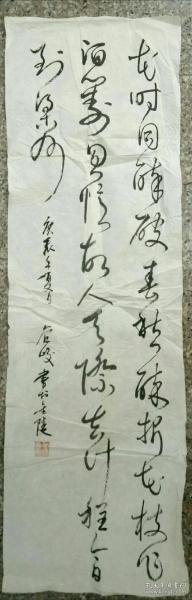 花时同醉破春愁醉折花枝作
酒筹忽忆故人天际去计程今日
到梁州
庚辰年夏月
書於金陵